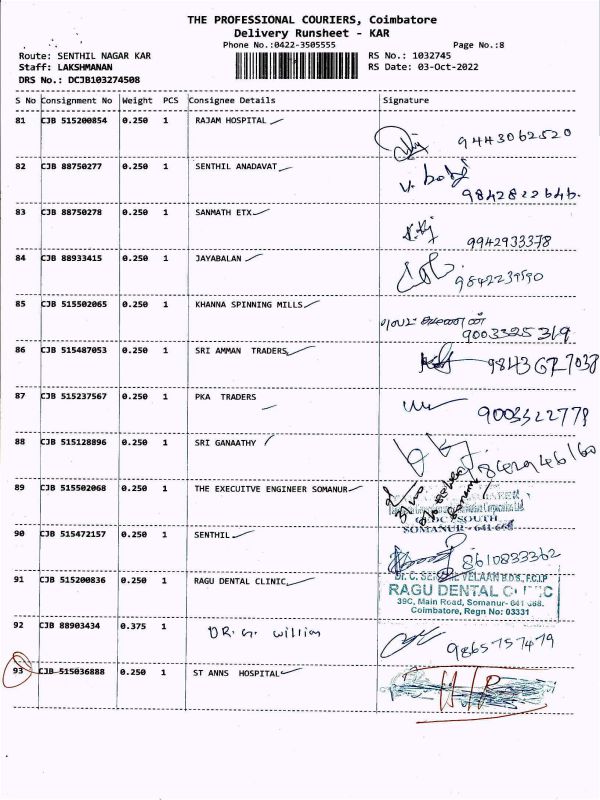 THE PROFESSIONAL COURIERS, Coimbatore
Delivery Runsheet - KAR
Phone No.:0422-3505555 Page No.:8
Route: SENTHIL NAGAR KAR RS No.: 1032745
Staff: LAKSHMANAN RS Date: 03-Oct-2022
DRS No.: DCJB103274508
S No Consignment No Weight PCS Consignee Details Signature
81 CJB 515200854 0.250 1 RAJAM HOSPITAL 9443062520
82 CJB 88750277 0.250 1 SENTHIL ANADAVAT 9842822646.
83 CJB 88750278 0.250 1 SANMATH ETX 9942933378
84 CJB 88933415 0.250 1 JAYABALAN
85 CJB 515502065 0.250 1 KHANNA SPINNING MILLS 9003325319
86 CJB 515487053 0.250 1 SRI AMMAN TRADERS
87 CJB 515237567 0.250 1 PKA TRADERS 9003322779
88 CJB 515128896 0.250 1 SRI GANAATHY
89 CJB 515502068 0.250 1 THE EXECUITVE ENGINEER SOMANUR
SOUTH
SOMANUR - 641 668
90 CJB 515472157 0.250 1 SENTHIL 8610833362
91 CJB 515200836 0.250 1 RAGU DENTAL CLINIC
RAGU DENTAL CLINIC
39C, Main Road, Somanur- 641 668.
Coimbatore, Regn No: 03331
92 CJB 88903434 0.375 1 DR. G. William 9865757479
93 CJB 515036888 0.250 1 ST ANNS HOSPITAL